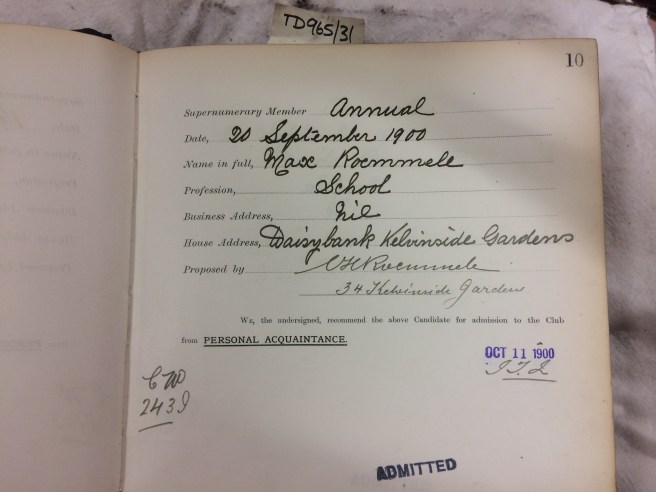 TD965/31
10
Supernumerary Member Annual
Date, 20 September 1900
Name in full, Max Roemmele
Profession, School
Business Address, Nil
House Address, Daisybank Kelvinside Gardens
Proposed by Roemmele
34 Kelvinside Gardens
We, the undersigned, recommend the above Candidate for admission to the Club
from PERSONAL ACQUAINTANCE.
OCT 11 1900
ADMITTED